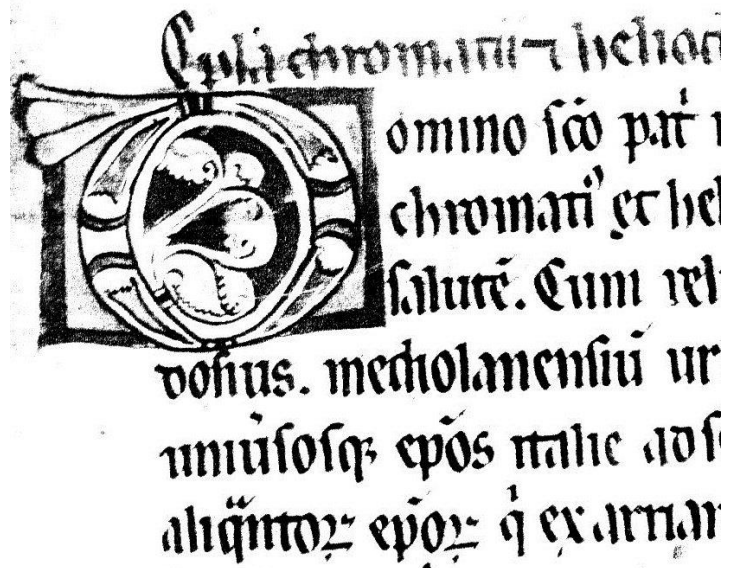 Ep̄la chromatii ⁊ heliod
Domino sc̄o pat̄
chromati' et hel
salutē. Cum rel
dosius. mediolanensiū ur
uniūsosq; ep̄os italie ad s
aliq̄ntoꝝ ep̄oꝝ qͥ ex arrian